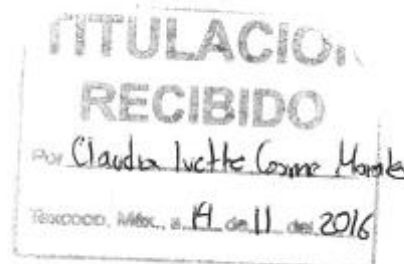 TITULACION
RECIBIDO
Por Claudia Ivette Cosme Morales
Texcoco, Méx., a 14 de 11 del 2016